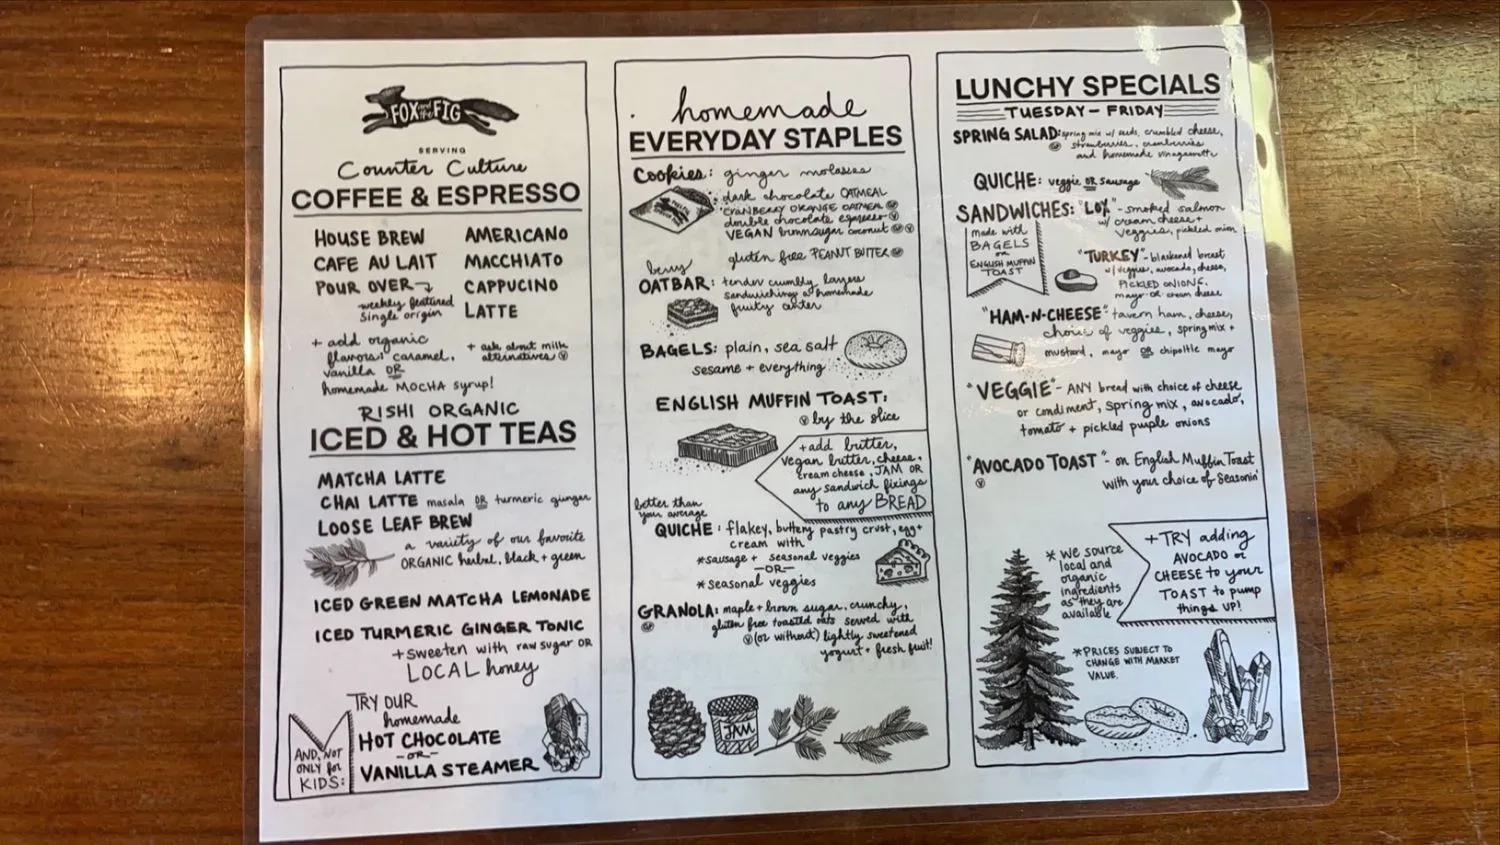 FOX and the FIG
SERVING
Counter Culture
COFFEE & ESPRESSO
HOUSE BREW
CAFE AU LAIT
POUR OVER
weekly featured
single origin
+ add organic
flavors: caramel,
vanilla OR
homemade MOCHA syrup!
AMERICANO
MACCHIATO
CAPPUCINO
LATTE
+ ask about milk
alternatives Ⓥ
RISHI ORGANIC
ICED & HOT TEAS
MATCHA LATTE
CHAI LATTE masala OR turmeric ginger
LOOSE LEAF BREW
a variety of our favorite
ORGANIC herbal, black + green
ICED GREEN MATCHA LEMONADE
ICED TURMERIC GINGER TONIC
+ sweeten with raw sugar OR
LOCAL honey
AND, NOT
ONLY for
KIDS:
TRY OUR
homemade
HOT CHOCOLATE
-OR-
VANILLA STEAMER
homemade
EVERYDAY STAPLES
Cookies: ginger molasses
dark chocolate OATMEAL
CRANBERRY ORANGE OATMEAL
double chocolate espresso Ⓥ
VEGAN brown sugar coconut Ⓥ
gluten free PEANUT BUTTER
berry
OATBAR: tender crumbly layers
sandwiching a homemade
fruity center
BAGELS: plain, sea salt
sesame + everything
ENGLISH MUFFIN TOAST:
Ⓥ by the slice
+ add butter,
vegan butter, cheese,
cream cheese, JAM OR
any sandwich fixings
to any BREAD
better than
your average
QUICHE: flakey, buttery pastry crust, egg +
cream with
* sausage + seasonal veggies
-OR-
* seasonal veggies
GRANOLA: maple + brown sugar, crunchy,
gluten free toasted oats served with
Ⓥ (or without) lightly sweetened
yogurt + fresh fruit!
JAM
LUNCHY SPECIALS
TUESDAY – FRIDAY
SPRING SALAD: spring mix w/ seeds, crumbled cheese,
strawberries, cranberries
and homemade vinaigarette
QUICHE: veggie OR sausage
SANDWICHES:
made with
BAGELS
or
ENGLISH MUFFIN
TOAST
"LOX" - smoked salmon
w/ cream cheese +
veggies, pickled onion
"TURKEY" - blackened breast
w/ veggies, avocado, cheese,
PICKLED ONIONS,
mayo OR cream cheese
"HAM-N-CHEESE" tavern ham, cheese,
choice of veggies, spring mix +
mustard, mayo OR chipotle mayo
"VEGGIE" - ANY bread with choice of cheese
or condiment, spring mix, avocado,
tomato + pickled purple onions
"AVOCADO TOAST" - on English Muffin Toast
Ⓥ with your choice of Seasonin'
* We source
local and
organic
ingredients
as they are
available
+ TRY adding
AVOCADO or
CHEESE to your
TOAST to pump
things UP!
* PRICES SUBJECT TO
CHANGE WITH MARKET
VALUE.